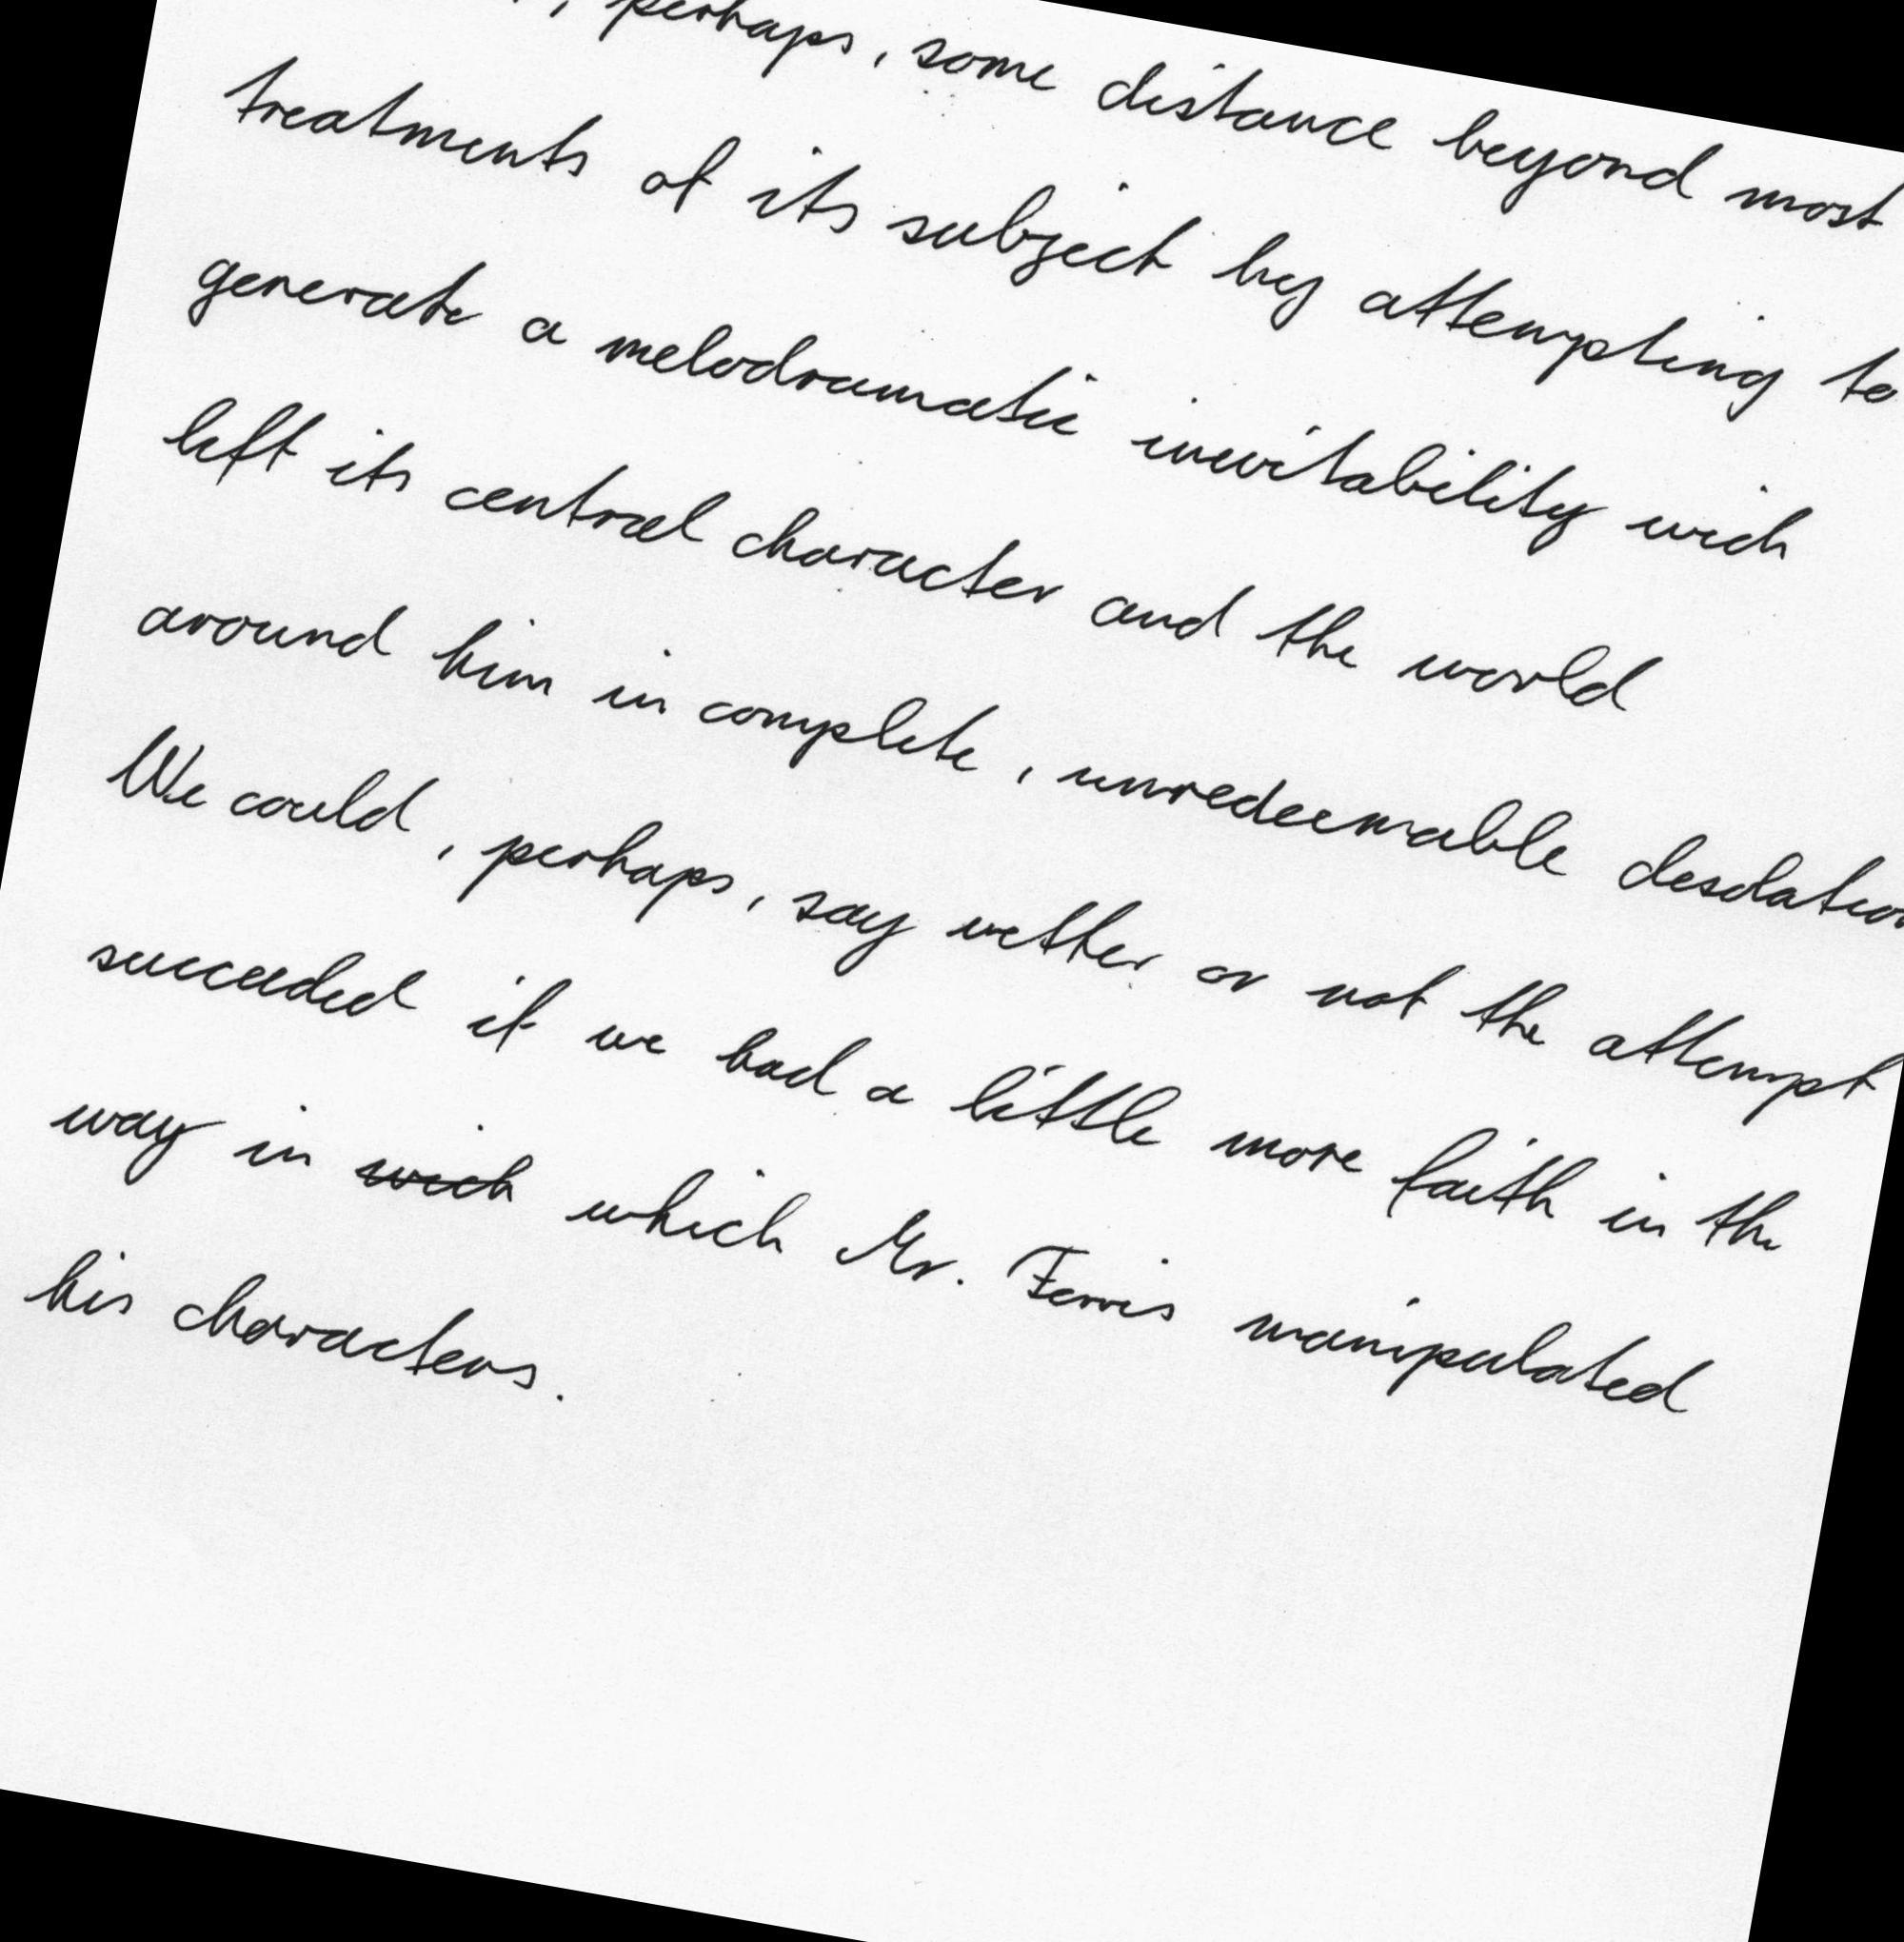 , perhaps, some distance beyond most
treatments of its subject by attempting to
generate a melodramatic inevitability wich
left its central character and the world
around him in complete, unredeemable desolation
We could, perhaps, say wether or not the attempt
succeeded if we had a little more faith in the
way in wich which Mr. Ferris manipulated
his characters.